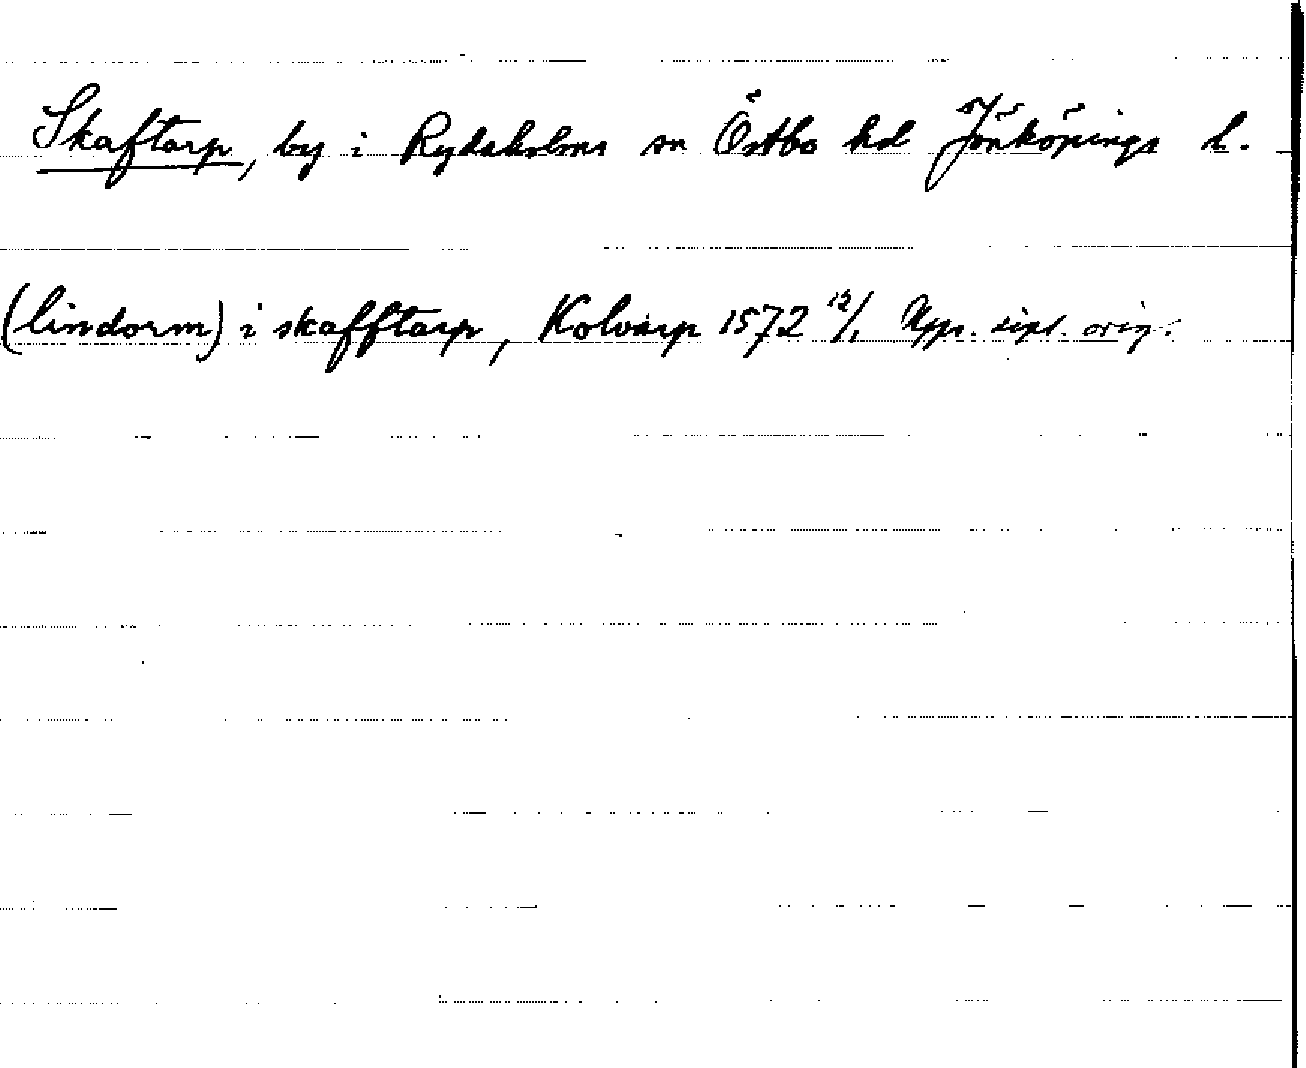 Skaftarp, by i Rydaholms sn Östbo hd Jönköpings l.
(lindorm) i skafftarp, Kolvarp 1572 12/1 Upps. dipl. orig.